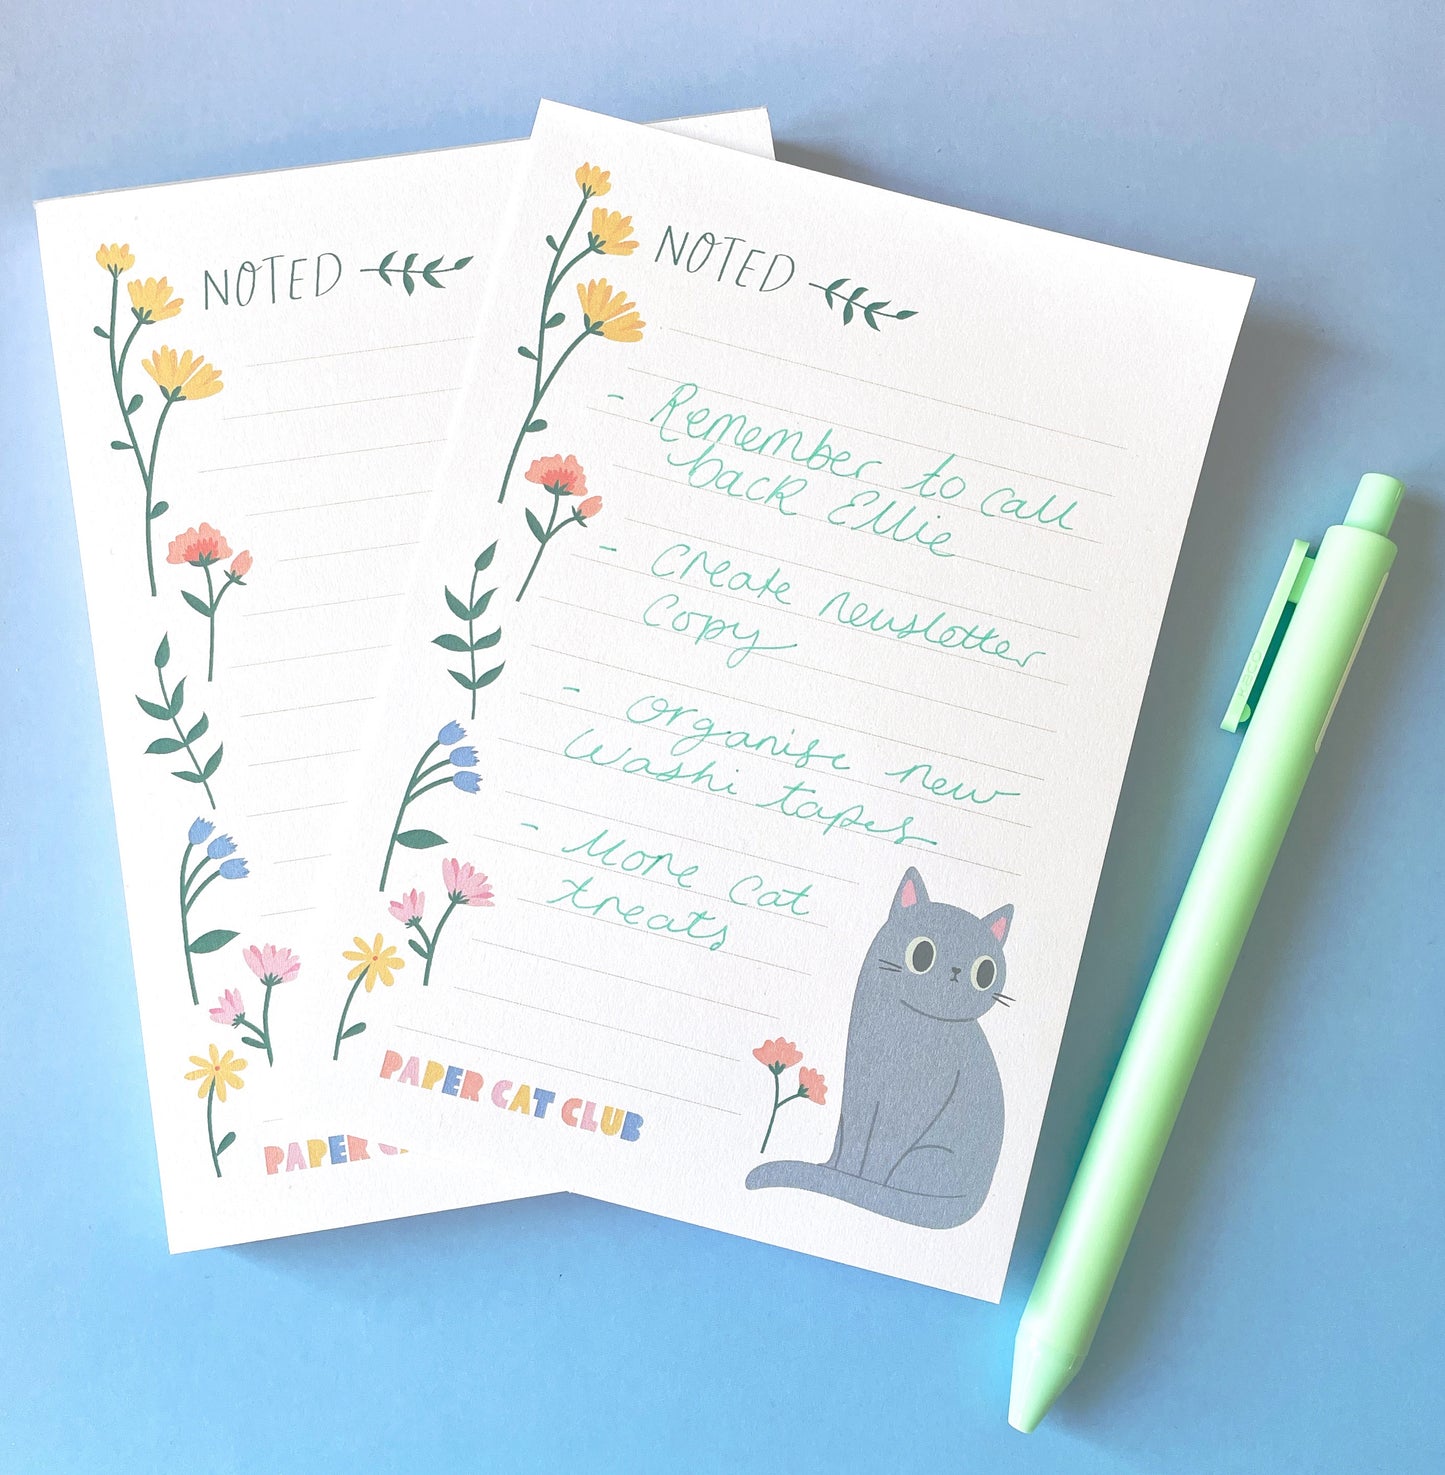 NOTED
NOTED
- Remember to call
back Ellie
- Create newsletter
Copy
- organise new
Washi tapes
- More cat
treats
PAPER CAT CLUB
PAPER
KACO